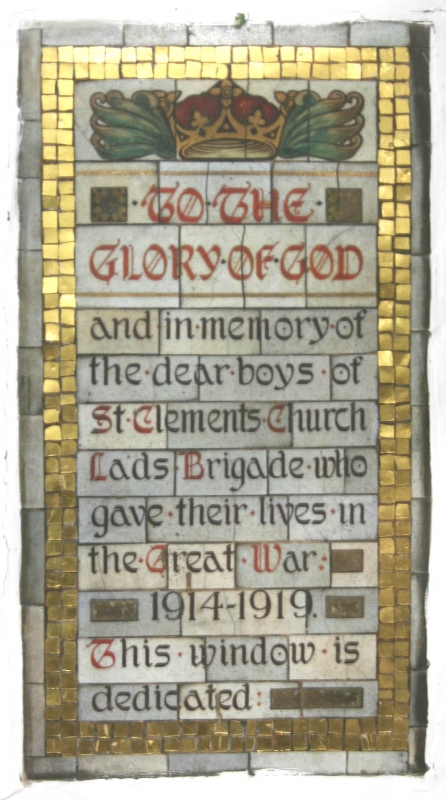 ·TO·THE·
GLORY·OF·GOD
and·in·memory·of
the·dear·boys·of
St·Clements·Church
Lads·Brigade·who
gave·their·lives·in
the·Great·War:
1914-1919.
This·window·is
dedicated: